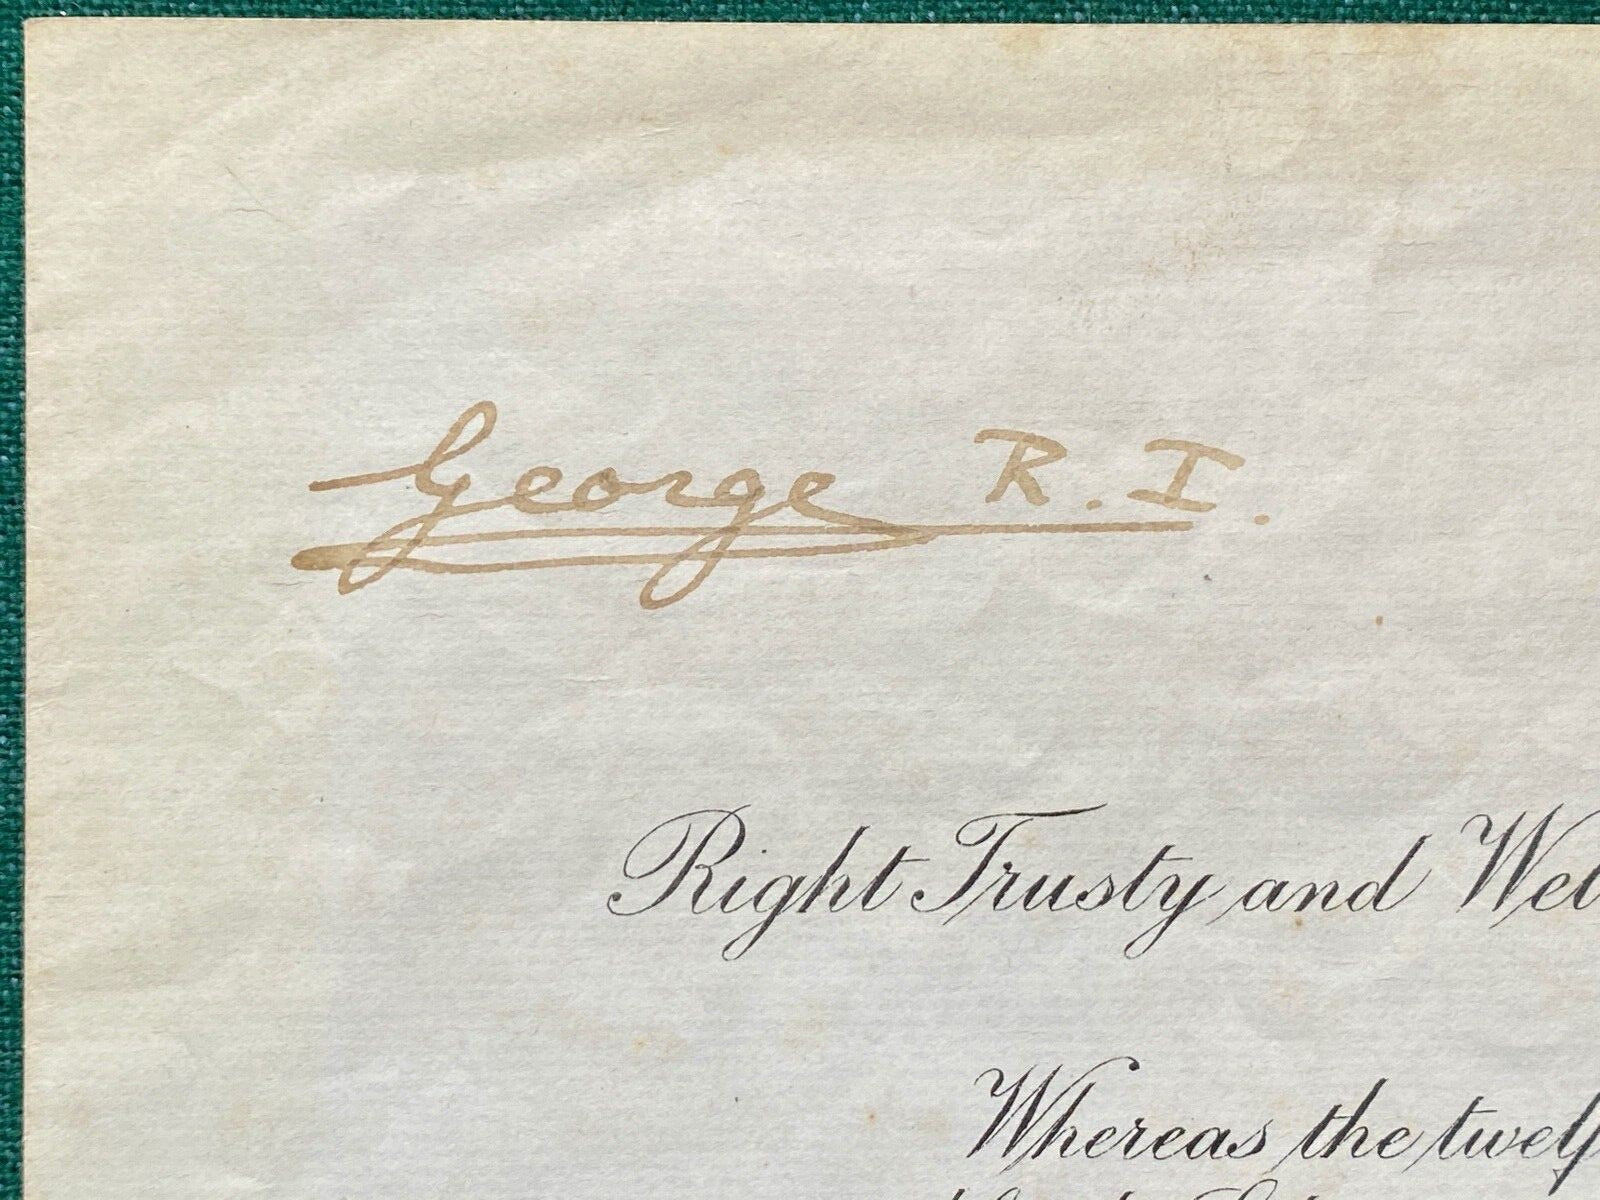 George R. I.
Right Trusty and Wel
Whereas the twelf